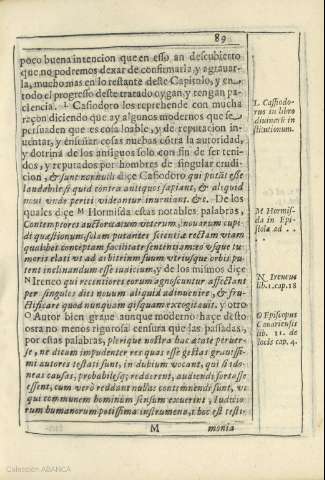 89
poco buena intencion que en esso an descubierto
que no podremos dexar de confirmarla, y agravar-
la, mucho mas en lo restante deste Capitulo, y en
todo el progresso deste tratado oygan, y tengan pa-
ciencia. L Casiodoro los reprehende con mucha
raçon diciendo que ay algunos modernos que se
persuaden que es cosa loable, y de reputacion in-
uentar, y enseñar cosas nuebas côtra la autoridad,
y dotrina de los antiguos solo con fin de ser teni-
dos, y reputados por hombres de singular erudi-
cion, & sunt nonnulli diçe Casiodoro qui putāt esse
laudabile si quid contra antiquos sapiant, & aliquid
noui unde periti videantur inueniant. &c. De los
quales diçe M Hormisda estas notables palabras,
Contemptores auctoritatum veterum, nouarum cupi-
di quæstionum, solam putantes scientiæ rectam viam
qualibet conceptam facilitate sententiam eo vsque tu-
moris elati vt ad arbitrium suum vtriusque orbis pu-
tent inclinandum esse iudicium, y de los mismos diçe
N Ireneo qui recentiores eorum agnoscuntur affectant
per singulos dies nouum aliquid adinuenire, & fru-
ctificare quod nunquam quisquam excogitauit. y otro
O Autor bien graue aunque moderno haçe desto
ostra no menos rigurosa censura que las passadas,
por estas palabras, plerique nostra hac ætate peruer-
se, ne dicam impudenter res quas esse gestas grauissi-
mi autores testati sunt, in dubium vocant, qui si ido-
neas causas, probabilesq; redderent, audiendi fortasse
essent, cum verò reddant nullas contemnendi sunt, vt
qui communem hominum sensum exuerint, Iuditio-
rum humanorum potissima instrumenta, hoc est testi-
M monia
L. Casiodo-
rus in libro
diuinarū in
stitutionum.
M Hormis-
da in Epi-
stola ad . .
N Ireneus
lib. 1. cap. 18
O Episcopus
Canariensis
lib. 11. de
locis cap. 4.
Colección ABANCA